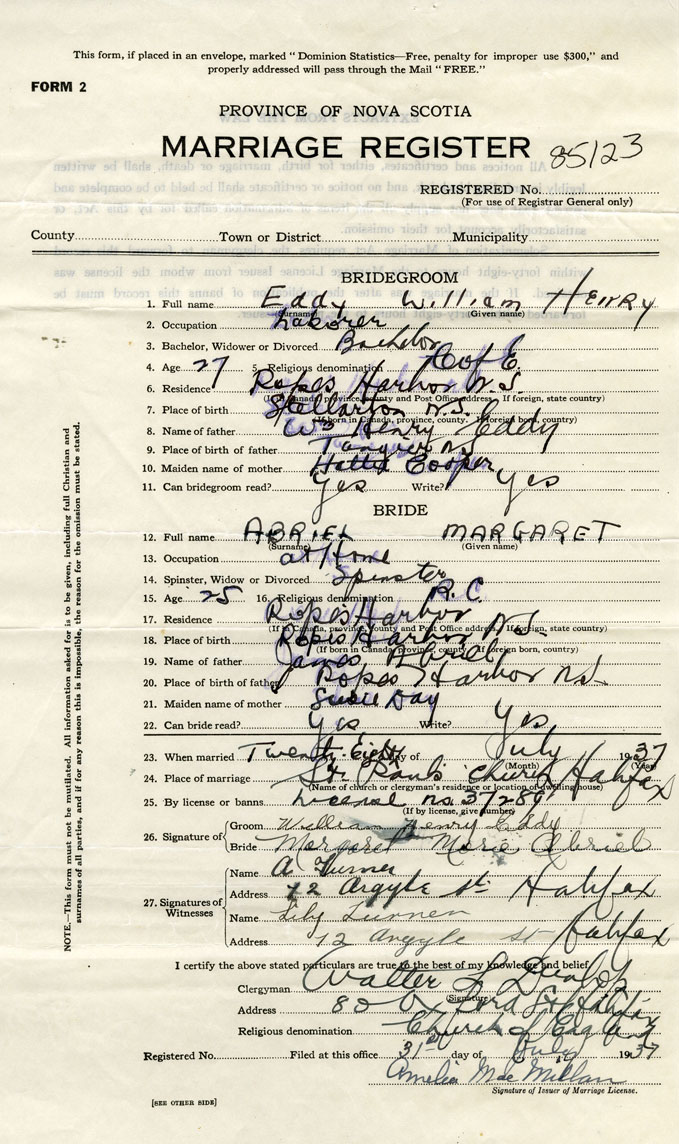 This form, if placed in an envelope, marked "Dominion Statistics—Free, penalty for improper use $300," and
properly addressed will pass through the Mail "FREE."
FORM 2
PROVINCE OF NOVA SCOTIA
MARRIAGE REGISTER 85123
REGISTERED No.
(For use of Registrar General only)
County Town or District Municipality
BRIDEGROOM
1. Full name Eddy William Henry
(Surname) (Given name)
2. Occupation Laborer
3. Bachelor, Widower or Divorced Bachelor
4. Age 27 5. Religious denomination C of E
6. Residence Popes Harbor N.S.
(If in Canada, province, county and Post Office address. If foreign, state country)
7. Place of birth Stellarton N.S.
(If born in Canada, province, county. If foreign born, country)
8. Name of father Wm Henry Eddy
9. Place of birth of father Tangier N.S.
10. Maiden name of mother Hatta Cooper
11. Can bridegroom read? Yes Write? Yes
BRIDE
12. Full name ABRIEL MARGARET
(Surname) (Given name)
13. Occupation at Home
14. Spinster, Widow or Divorced Spinster
15. Age 25 16. Religious denomination R.C.
17. Residence Popes Harbor
(If in Canada, province, county and Post Office address. If foreign, state country)
18. Place of birth Popes Harbor N.S.
(If born in Canada, province, county. If foreign born, country)
19. Name of father James Abriel
20. Place of birth of father Popes Harbor N.S.
21. Maiden name of mother Susie Day
22. Can bride read? Yes Write? Yes
23. When married Twenty Eighth day of July 1937
(Month) (Year)
24. Place of marriage St. Pauls Church Halifax
(Name of church or clergyman's residence or location of dwelling house)
25. By license or banns License No. 37289
(If by license, give number)
26. Signature of
Groom William Henry Eddy
Bride Margaret Marie Abriel
27. Signatures of Witnesses
Name A Turner
Address 12 Argyle St. Halifax
Name Lily Turner
Address 12 Argyle St Halifax
I certify the above stated particulars are true to the best of my knowledge and belief
Clergyman Walter L Dunlop
(Signature)
Address 80 St Halifax
Religious denomination Church of England
Registered No. Filed at this office 31st day of July 1937
Amelia MacMillan
Signature of Issuer of Marriage License.
[SEE OTHER SIDE]
NOTE.—This form must not be mutilated. All information asked for is to be given, including full Christian and
surnames of all parties, and if for any reason this is impossible, the reason for the omission must be stated.